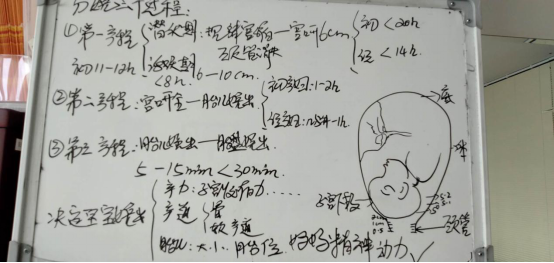 分娩三个过程:
①第一产程 潜伏期:规律宫缩一宫口6cm 初<20h
颈管消失 经<14h
初11-12h 活跃期 6-10cm
<8h
②第二产程:宫口全一胎儿娩出 初产妇:1-2h
经产妇:
③第三产程:胎儿娩出一胎盘娩出
5-15min<30min
产力:子宫收缩力……
产道 骨
软产道
胎儿:大小.胎位.
精神动力
底
体
子宫下段
颈管